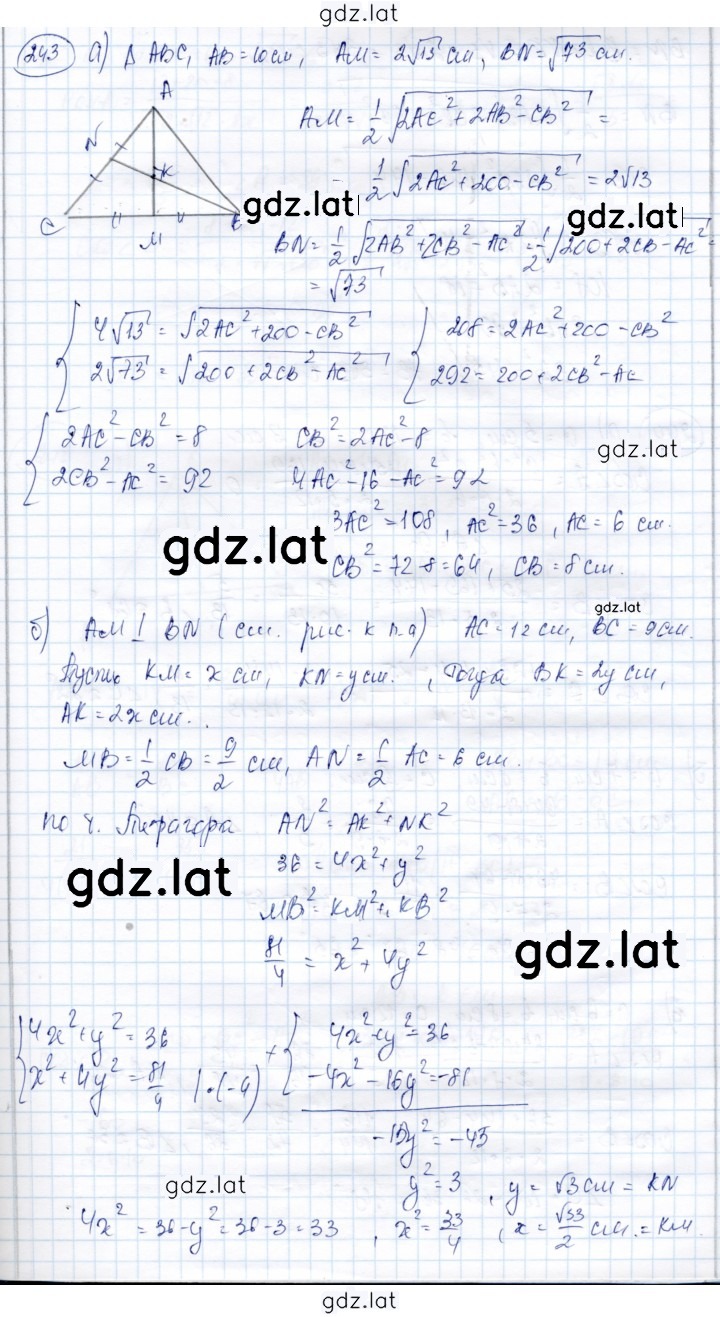 gdz.lat
243 а) Δ ABC, AB = 10 см, AM = 2√13 см, BN = √73 см.
A
N
K
C
M
gdz.lat
AM = 1/2 √(2AC² + 2AB² - CB²) =
= 1/2 √(2AC² + 200 - CB²) = 2√13
gdz.lat
BN = 1/2 √(2AB² + 2CB² - AC²) = 1/2 √(200 + 2CB - AC²) =
= √73
{ 4√13 = √(2AC² + 200 - CB²) { 208 = 2AC² + 200 - CB²
2√73 = √(200 + 2CB² - AC²) 292 = 200 + 2CB² - AC
{ 2AC² - CB² = 8 CB² = 2AC² - 8
gdz.lat
2CB² - AC² = 92 4AC² - 16 - AC² = 92
3AC² = 108, AC² = 36, AC = 6 см.
gdz.lat
CB² = 72 - 8 = 64, CB = 8 см.
gdz.lat
б) AM ⊥ BN (см. рис. к п.а) AC = 12 см, BC = 9 см.
Пусть KM = x см, KN = y см., Тогда BK = 2y см,
AK = 2x см.
MB = 1/2 CB = 9/2 см, AN = 1/2 AC = 6 см.
по т. Пифагора AN² = AK² + NK²
36 = 4x² + y²
gdz.lat
MB² = KM² + KB²
81/4 = x² + 4y²
gdz.lat
{ 4x² + y² = 36 + { 4x² + y² = 36
x² + 4y² = 81/4 | · (-4) -4x² - 16y² = -81
-15y² = -45
gdz.lat
y² = 3, y = √3 см = KN
4x² = 36 - y² = 36 - 3 = 33, x² = 33/4, x = √33/2 см. = KM.
gdz.lat